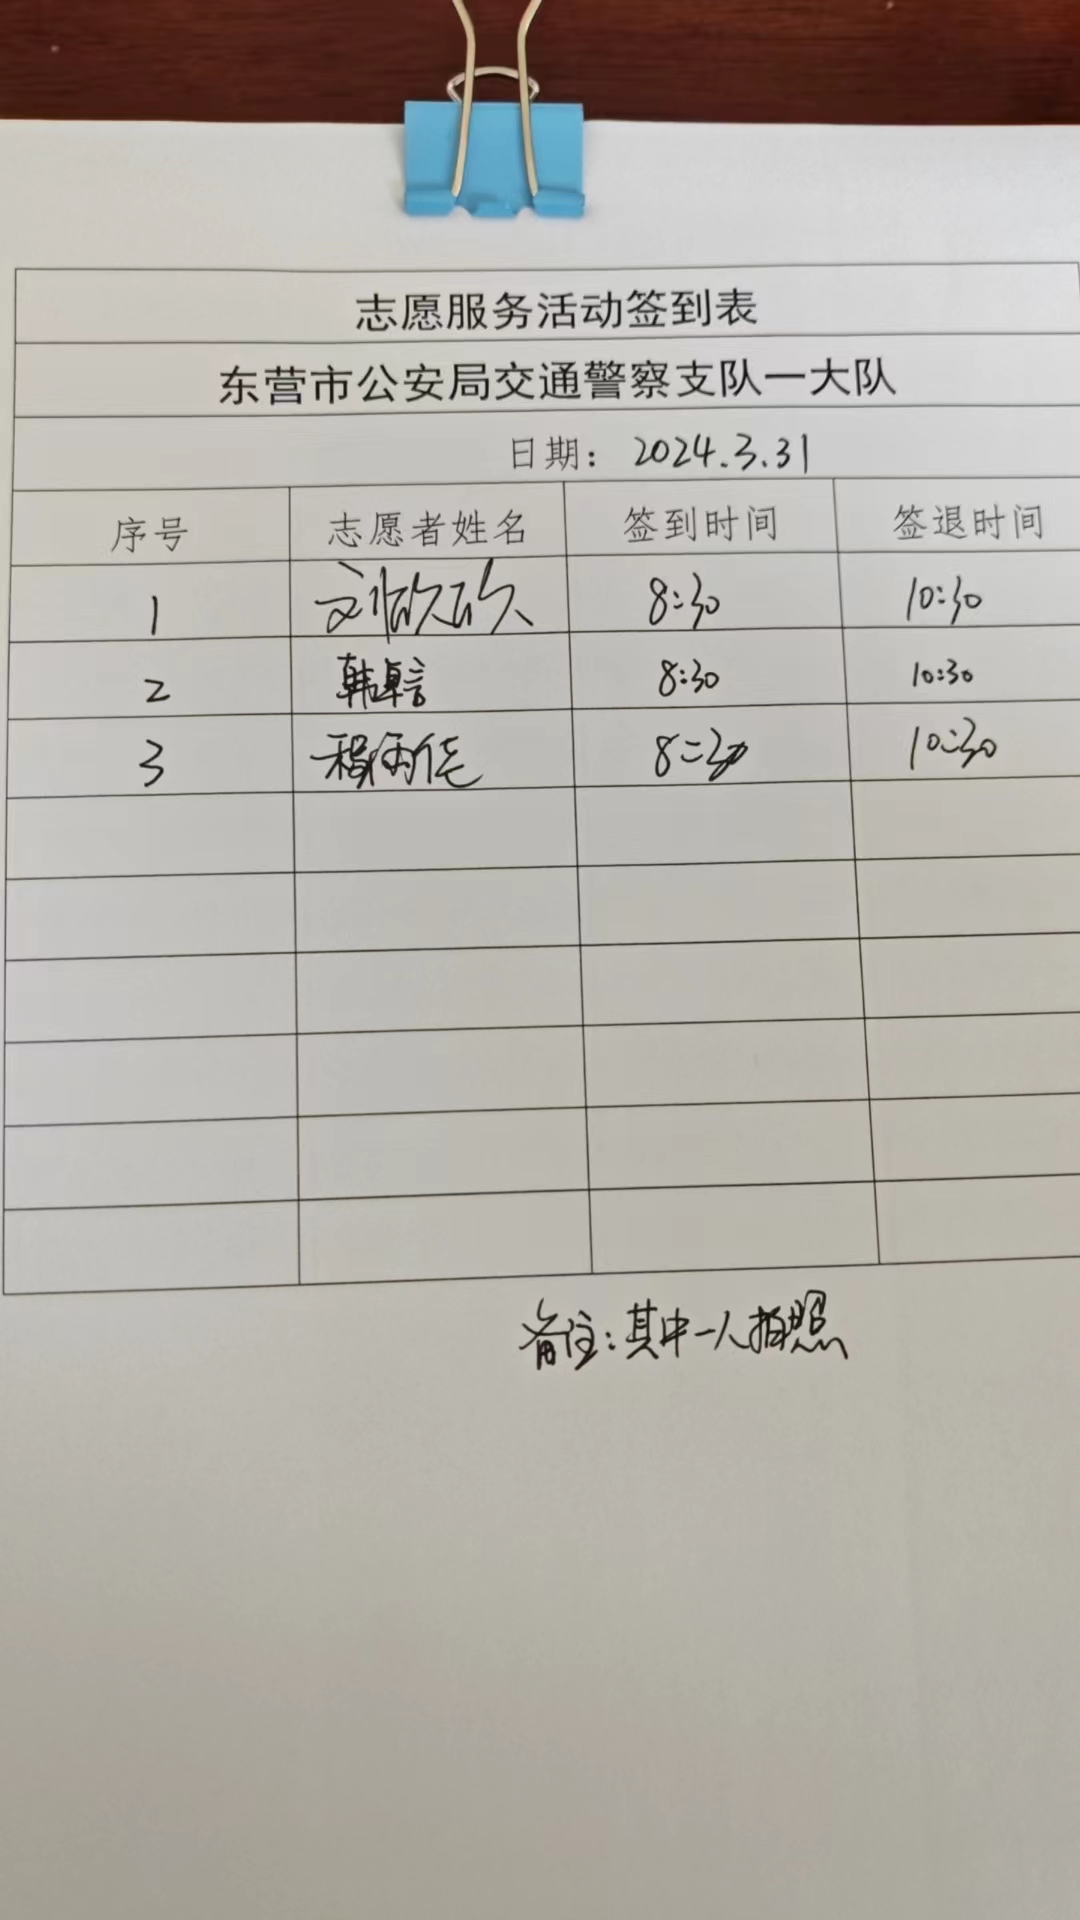 志愿服务活动签到表
东营市公安局交通警察支队一大队
日期： 2024.3.31
序号 志愿者姓名 签到时间 签退时间
1 刘欣欣 8:30 10:30
2 韩 8:30 10:30
3 程 8:30 10:30
备注：其中一人拍照